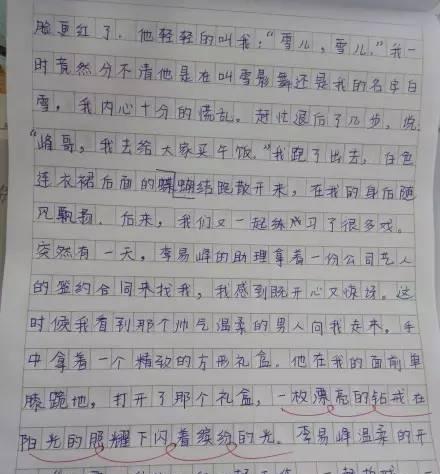 脸更红了。他轻轻的叫我:“雪儿,雪儿。”我一
时竟然分不清他是在叫雪影舞还是我的名字白
雪。我内心十分的慌乱。赶忙退后了几步,说
“峰哥,我去给大家买午饭。”我跑了出去,白色
连衣裙后面的蝴蝶结跑散开来,在我的身后随
风飘扬。后来,我们又一起练习了很多戏。
突然有一天,李易峰的助理拿着一份公司艺人
的签约合同来找我,我感到既开心又惊讶。这
时候我看到那个帅气温柔的男人向我走来,手
中拿着一个精致的方形礼盒。他在我的面前单
膝跪地,打开了那个礼盒,一枚漂亮的钻戒在
阳光的照耀下闪着缤纷的光。李易峰温柔的开